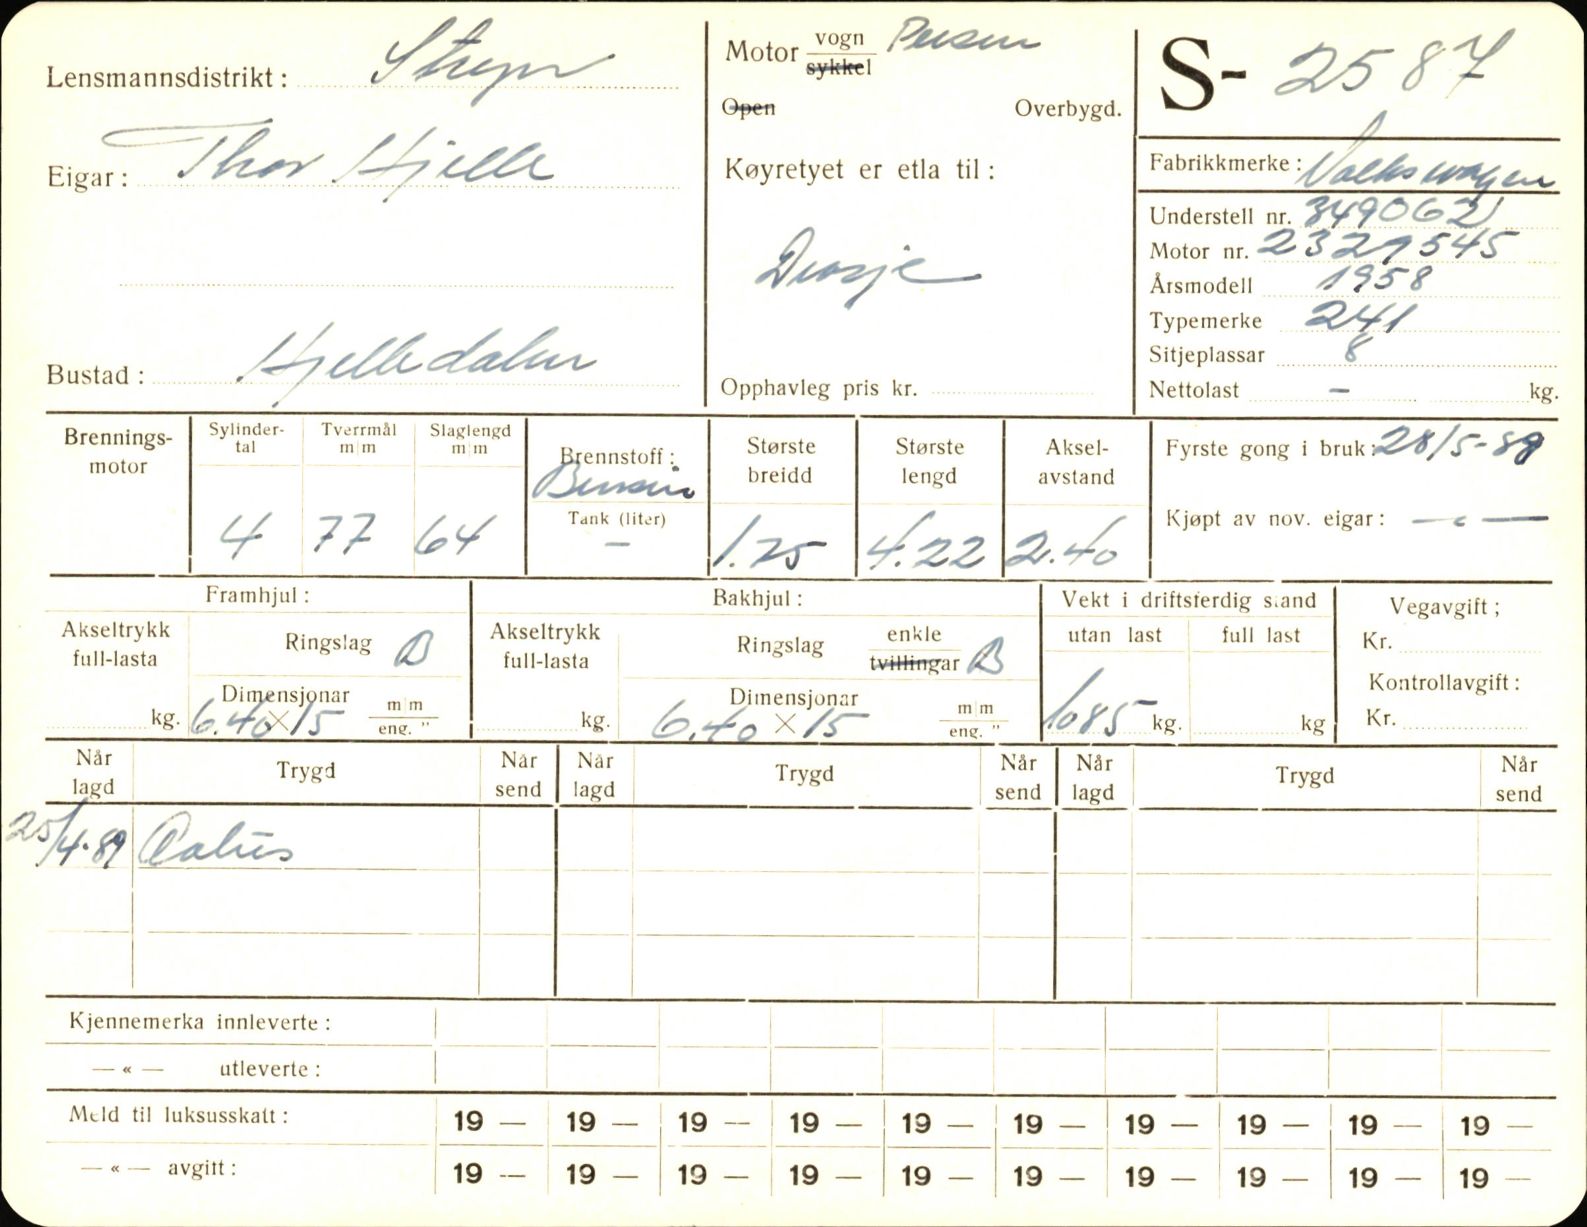 Lensmannsdistrikt: Stryn
Motor vogn Person
sykkel
Open Overbygd.
S- 2587
Eigar: Thor Hjelle
Køyretyet er etla til:
Drosje
Bustad: Hjelledalen
Opphavleg pris kr.
Fabrikkmerke: Volkswagen
Understell nr. 349062
Motor nr. 2329545
Årsmodell 1958
Typemerke 241
Sitjeplassar 8
Nettolast – kg.
Brennings-
motor
Sylinder-
tal
4
Tverrmål
m|m
77
Slaglengd
m|m
64
Brennstoff:
Bensin
Tank (liter)
–
Største
breidd
1.75
Største
lengd
4.22
Aksel-
avstand
2.40
Fyrste gong i bruk: 28/5-
Kjøpt av nov. eigar: — " —
Framhjul:
Akseltrykk
full-lasta
kg.
Ringslag B
Dimensjonar m|m
6.40 × 15 eng. "
Bakhjul:
Akseltrykk
full-lasta
kg.
Ringslag enkle
tvillingar B
Dimensjonar m|m
6.40 × 15 eng. "
Vekt i driftsferdig stand
utan last full last
1085 kg. kg
Vegavgift;
Kr.
Kontrollavgift:
Kr.
Når
lagd Trygd Når
send Når
lagd Trygd Når
send Når
lagd Trygd Når
send
25/4-89
Kjennemerka innleverte:
— « — utleverte:
Meld til luksusskatt: 19 — 19 — 19 — 19 — 19 — 19 — 19 — 19 — 19 — 19 —
— « — avgift: 19 — 19 — 19 — 19 — 19 — 19 — 19 — 19 — 19 — 19 —